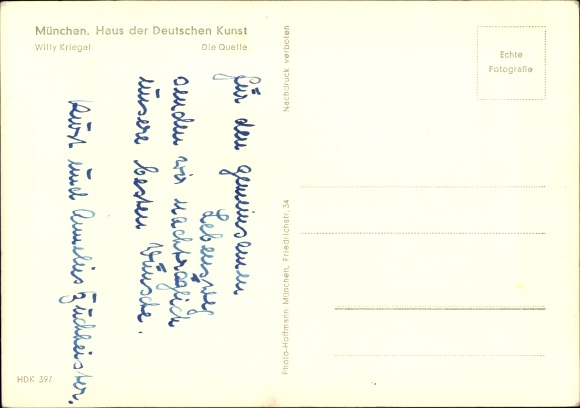 München. Haus der Deutschen Kunst
Willy Kriegel Die Quelle
Für den gemeinsamen
Lebensweg
senden wir nachträglich
unsere besten Wünsche.
Kurt und
HDK 397
Nachdruck verboten
Photo-Hoffmann München, Friedrichstr. 34
Echte
Fotografie